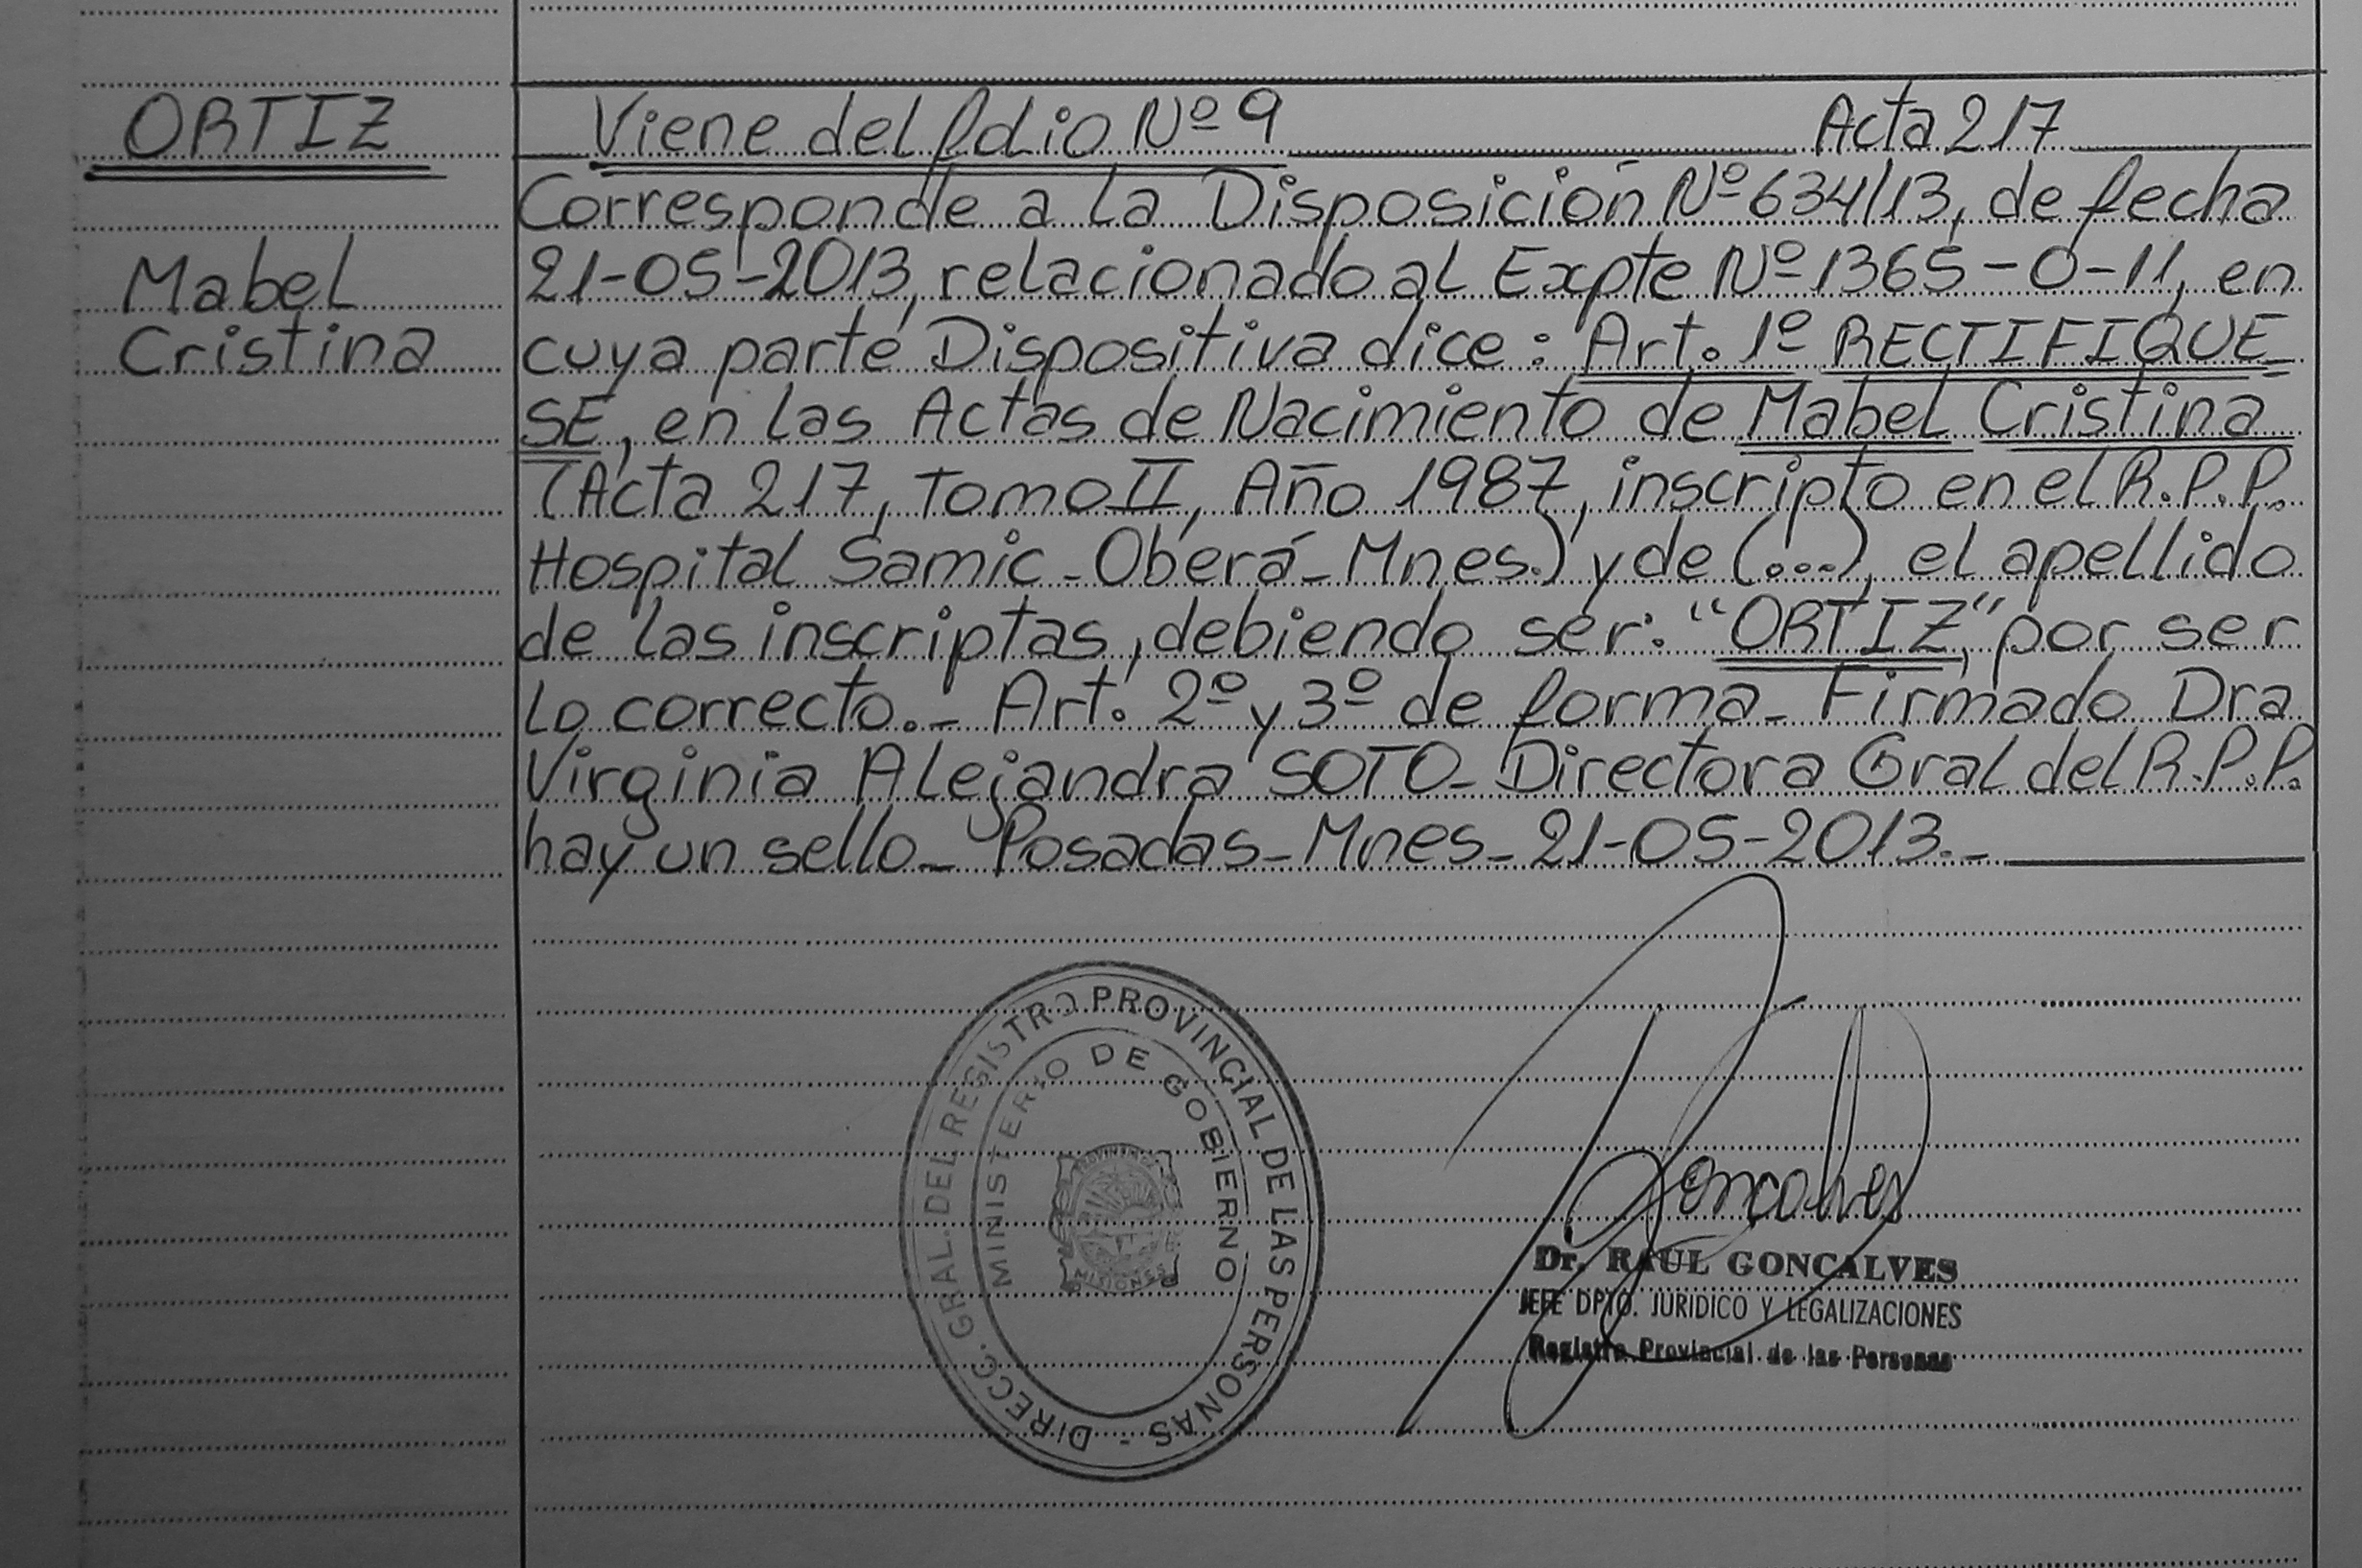 ORTIZ
Viene del folio Nº 9 Acta 217
Corresponde a la Disposición Nº 634/13, de fecha
Mabel
21-05-2013, relacionado al Expte Nº 1365-O-11, en
Cristina
cuya parte Dispositiva dice: Art. 1º RECTIFIQUE=
SE, en las Actas de Nacimiento de Mabel Cristina
(Acta 217, Tomo II, Año 1987, inscripto en el R.P.P.
Hospital Samic - Oberá - Mnes.) y de (...), el apellido
de las inscriptas, debiendo ser: "ORTIZ", por ser
lo correcto.- Art. 2º y 3º de forma - Firmado Dra
Virginia Alejandra SOTO - Directora Gral del R.P.P.
hay un sello - Posadas - Mnes - 21-05-2013.-
DIRECC. GRAL. DEL REGISTRO PROVINCIAL DE LAS PERSONAS -
MINISTERIO DE GOBIERNO
MISIONES
Goncalves
Dr. RAUL GONCALVES
JEFE DPTO. JURIDICO Y LEGALIZACIONES
Registro Provincial de las Personas